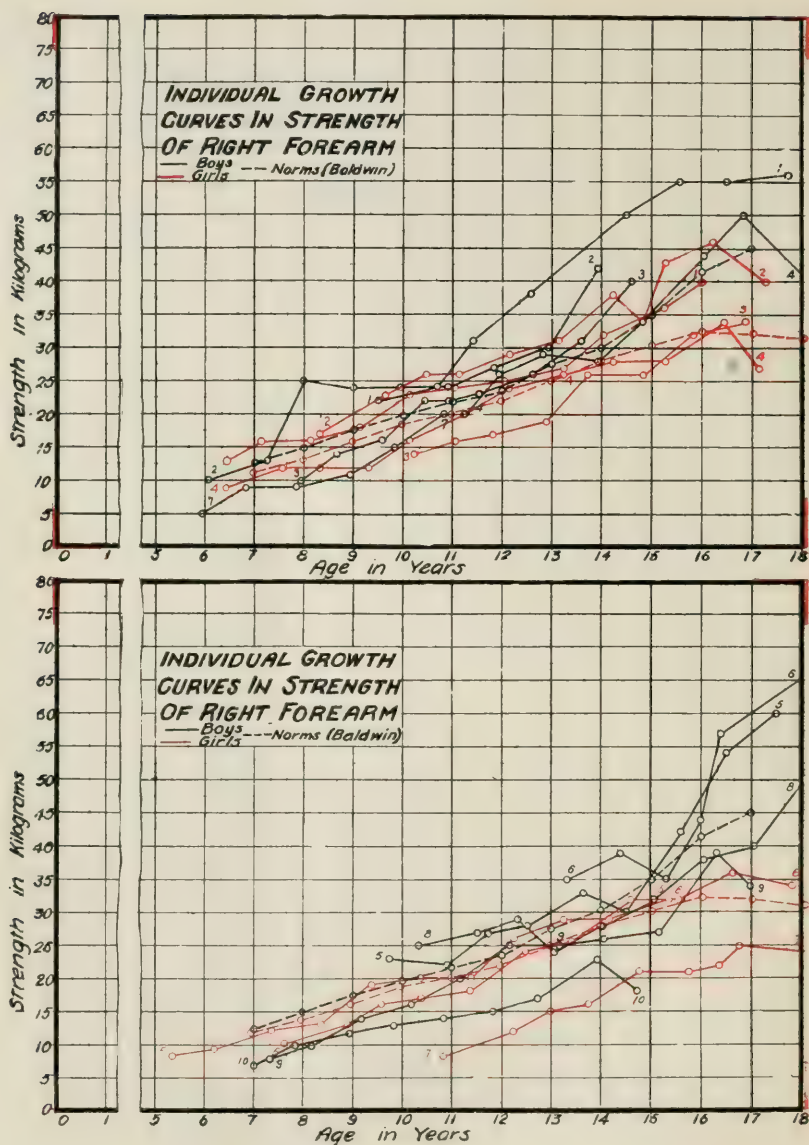 80
75
70
65
60
55
50
45
40
35
30
25
20
15
10
5
0
Strength in Kilograms
INDIVIDUAL GROWTH
CURVES IN STRENGTH
OF RIGHT FOREARM
Boys
Girls
Norms (Baldwin)
0 1 5 6 7 8 9 10 11 12 13 14 15 16 17 18
Age in Years
80
75
70
65
60
55
50
45
40
35
30
25
20
15
10
5
0
Strength in Kilograms
INDIVIDUAL GROWTH
CURVES IN STRENGTH
OF RIGHT FOREARM
Boys
Girls
Norms (Baldwin)
0 1 5 6 7 8 9 10 11 12 13 14 15 16 17 18
Age in Years